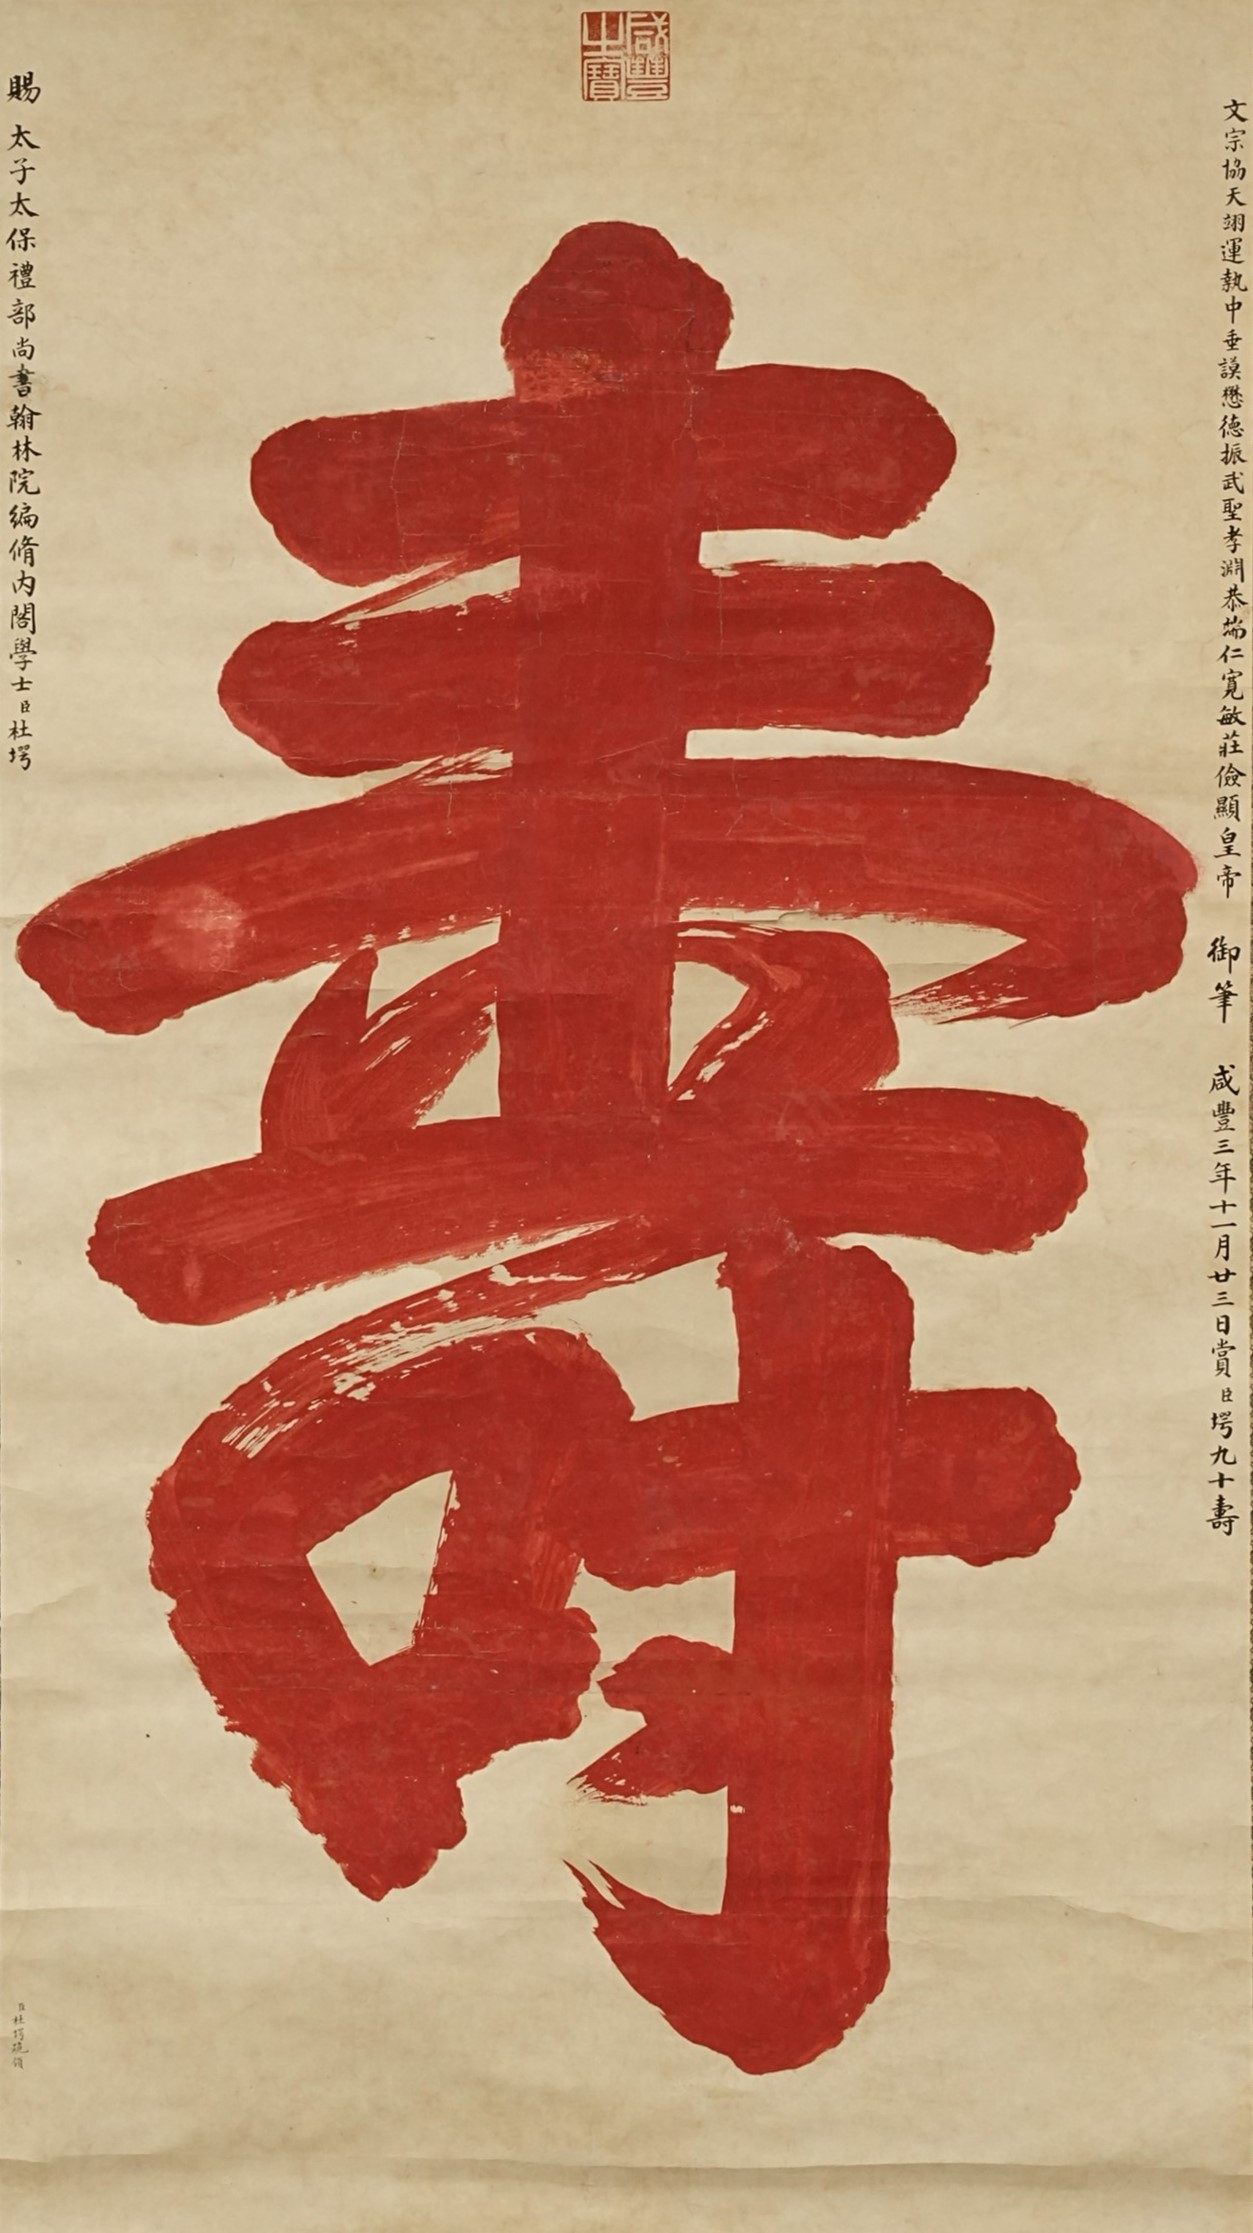 咸豐之寶
文宗協天翊運執中垂謨懋德振武聖孝淵恭端仁寬敏莊儉顯皇帝 御筆 咸豐三年十一月廿三日賞臣堮九十壽
壽
賜 太子太保禮部尚書翰林院編脩內閣學士臣杜堮
臣杜堮